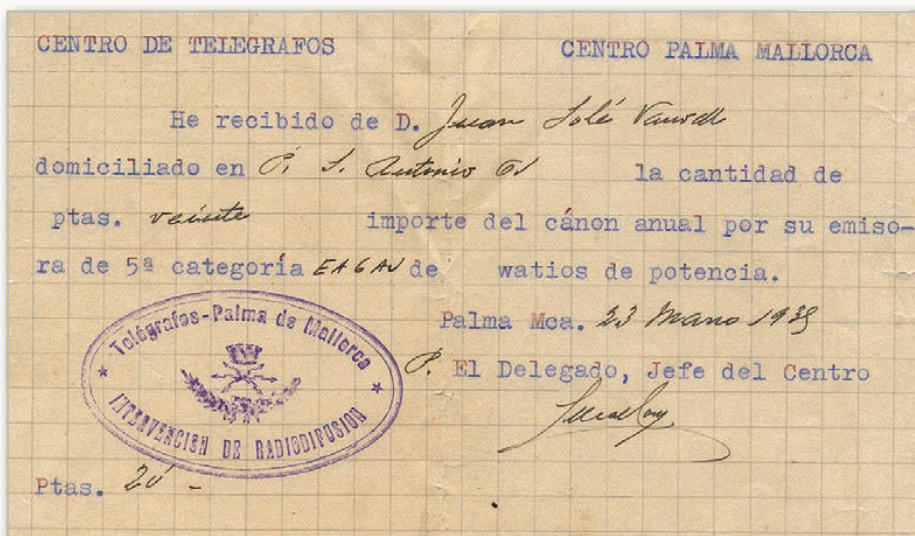 CENTRO DE TELEGRAFOS CENTRO PALMA MALLORCA
He recibido de D. Juan Solé
domiciliado en P. S. Antonio la cantidad de
ptas. veinte importe del cánon anual por su emiso-
ra de 5ª categoría EA6AV de watios de potencia.
Palma Mca. 23 Marzo 1935
P. El Delegado, Jefe del Centro
Telégrafos-Palma de Mallorca
INTERVENCION DE RADIODIFUSION
Ptas. 20 -